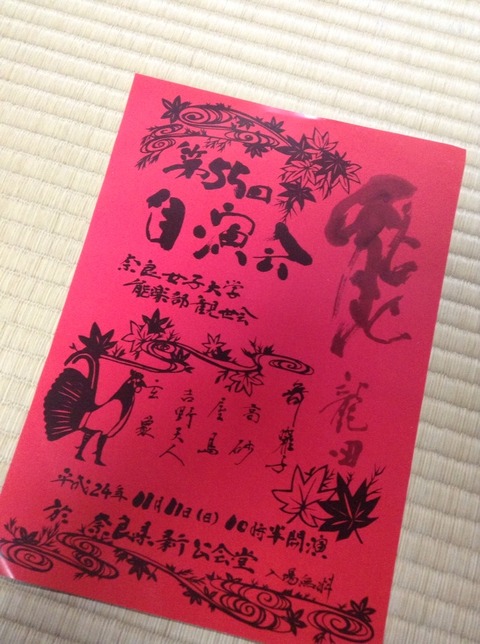 第55回
自演会
龍田
奈良女子大学
能楽部観世会
舞囃子
高砂
屋島
吉野天人
平成24年11月11日(日)10時半開演
於 奈良県新公会堂
入場無料